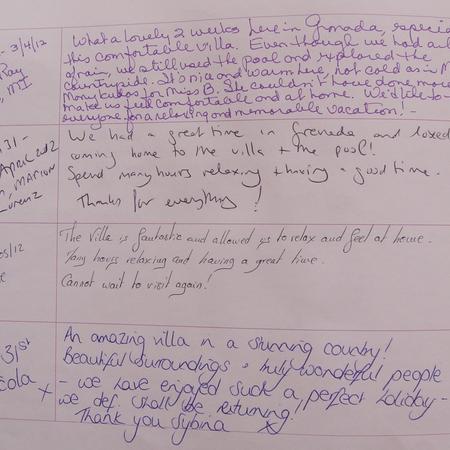 - 3/4/12
Ray
, MI
What a lovely 2 weeks here in Grenada, especia
this comfortable villa. Even though we had a
of rain, we still used the pool and explored the
countryside. It's nice and warm here, not cold as in M
Many kudos for Miss B. She couldn't have done more
make us feel comfortable and at home. We'd like to
everyone for a relaxing and memorable vacation! -
31 -
APRIL 2012
, MARION
Lorenz
We had a great time in Grenada and loved
coming home to the villa + the pool!
Spend many hours relaxing + having a good time.
Thanks for everything!
05/12
The Villa is fantastic and allowed us to relax and feel at home.
Many hours relaxing and having a great time.
Cannot wait to visit again!
31st
cola x
An amazing villa in a stunning country!
Beautiful surroundings & truly wonderful people
- we have enjoyed such a perfect holiday -
we def. shall be returning!
Thank you Sybria x